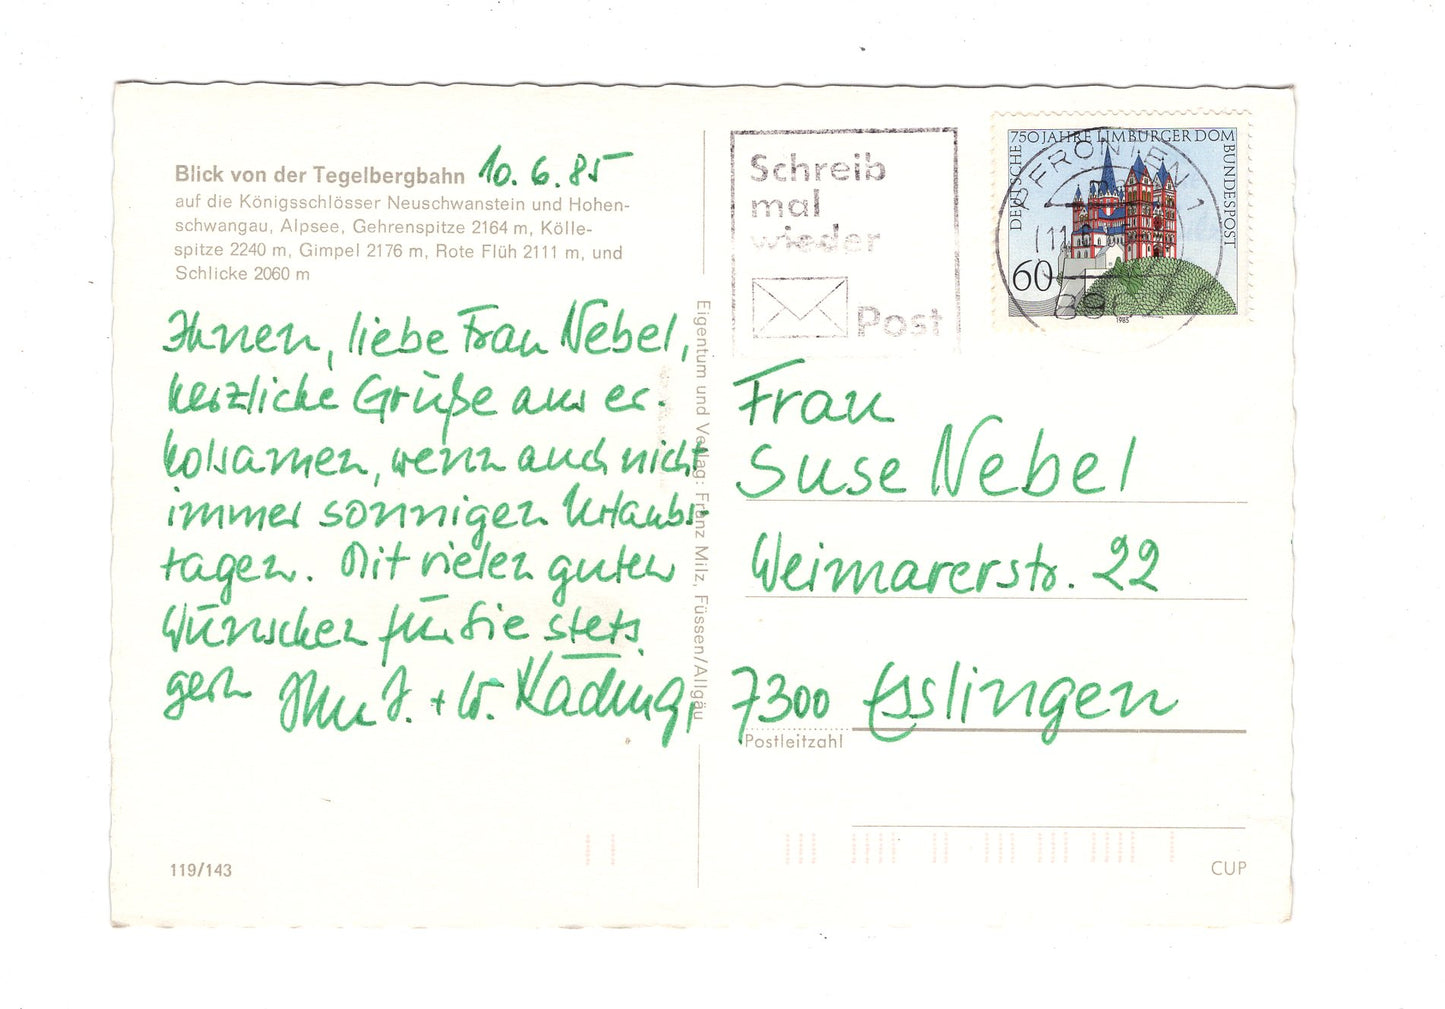 Blick von der Tegelbergbahn 10.6.85
auf die Königsschlösser Neuschwanstein und Hohen-
schwangau, Alpsee, Gehrenspitze 2164 m, Kölle-
spitze 2240 m, Gimpel 2176 m, Rote Flüh 2111 m, und
Schlicke 2060 m
Ihnen, liebe Frau Nebel,
herzliche Grüße aus er-
holsamen, wenn auch nicht
immer sonnigen Urlaubs-
tagen. Mit vielen guten
Wünschen für Sie stets
gern Ihre J. + W. Käding,
119/143
Eigentum und Verlag: Franz Milz, Füssen/Allgäu
Schreib
mal
wieder
Post
750 JAHRE LIMBURGER DOM
DEUTSCHE
BUNDESPOST
60
1985
PFRONTEN 1
Frau
Suse Nebel
Weimarerstr. 22
7300 Esslingen
Postleitzahl
CUP